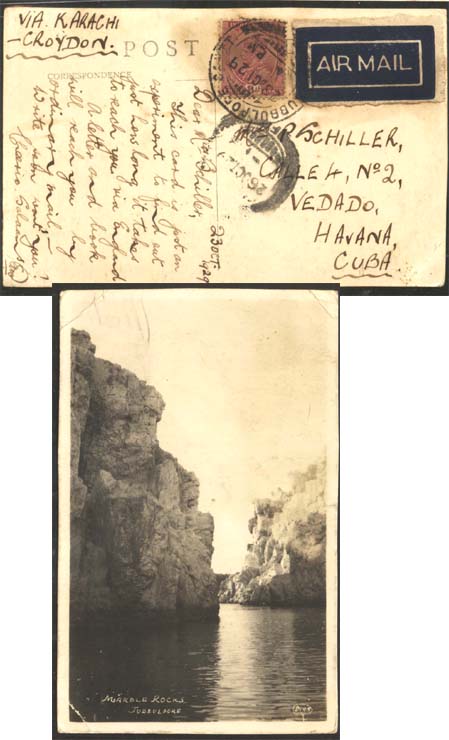 VIA. KARACHI
– CROYDON.
POST
CORRESPONDENCE
AIR MAIL
JUBBULPORE
OCT. 29
26 OCT
SCHILLER,
CALLE 4, Nº 2,
VEDADO,
HAVANA,
CUBA
23 OCT.
1929
Dear Mr Schiller,
This card is just an
experiment to find out
just how long it takes
to reach you via England
A letter and book
will reach you by
ordinary mail –
Write soon won't you?
MARBLE ROCKS
JUBBULPORE